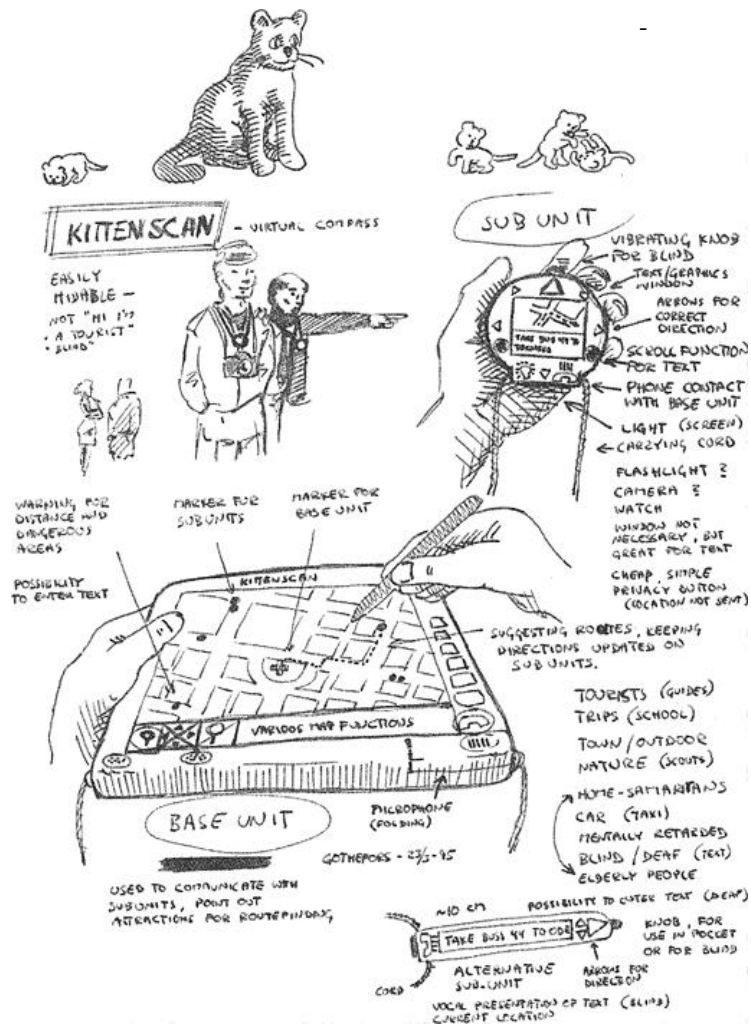 KITTENSCAN
- VIRTUAL COMPASS
EASILY
HIDABLE -
NOT "HI I'M
• A TOURIST"
• BLIND"
SUB UNIT
VIBRATING KNOB
FOR BLIND
TEXT/GRAPHICS
WINDOW
ARROWS FOR
CORRECT
DIRECTION
SCROLL FUNCTION
FOR TEXT
PHONE CONTACT
WITH BASE UNIT
LIGHT (SCREEN)
CARRYING CORD
FLASHLIGHT ?
CAMERA ?
WATCH
WINDOW NOT
NECESSARY, BUT
GREAT FOR TEXT
CHEAP, SIMPLE
PRIVACY BUTTON
(LOCATION NOT SENT)
TAKE BUS 44 TO
WARNING FOR
DISTANCE AND
DANGEROUS
AREAS
POSSIBILITY
TO ENTER TEXT
MARKER FOR
SUBUNITS
MARKER FOR
BASE UNIT
KITTENSCAN
SUGGESTING ROUTES, KEEPING
DIRECTIONS UPDATED ON
SUB UNITS.
VARIOUS MAP FUNCTIONS
MICROPHONE
(FOLDING)
BASE UNIT
USED TO COMMUNICATE WITH
SUBUNITS, POINT OUT
ATTRACTIONS FOR ROUTEFINDING
TOURISTS (GUIDES)
TRIPS (SCHOOL)
TOWN/OUTDOOR
NATURE (SCOUTS)
HOME-SAMARITANS
CAR (TAXI)
MENTALLY RETARDED
BLIND/DEAF (TEXT)
ELDERLY PEOPLE
~10 CM
POSSIBILITY TO ENTER TEXT (DEAF)
TAKE BUSS 44 TO ODE
KNOB, FOR
USE IN POCKET
OR FOR BLIND
CORD
ALTERNATIVE
SUB-UNIT
ARROWS FOR
DIRECTION
VOCAL PRESENTATION OF TEXT (BLIND)
CURRENT LOCATION